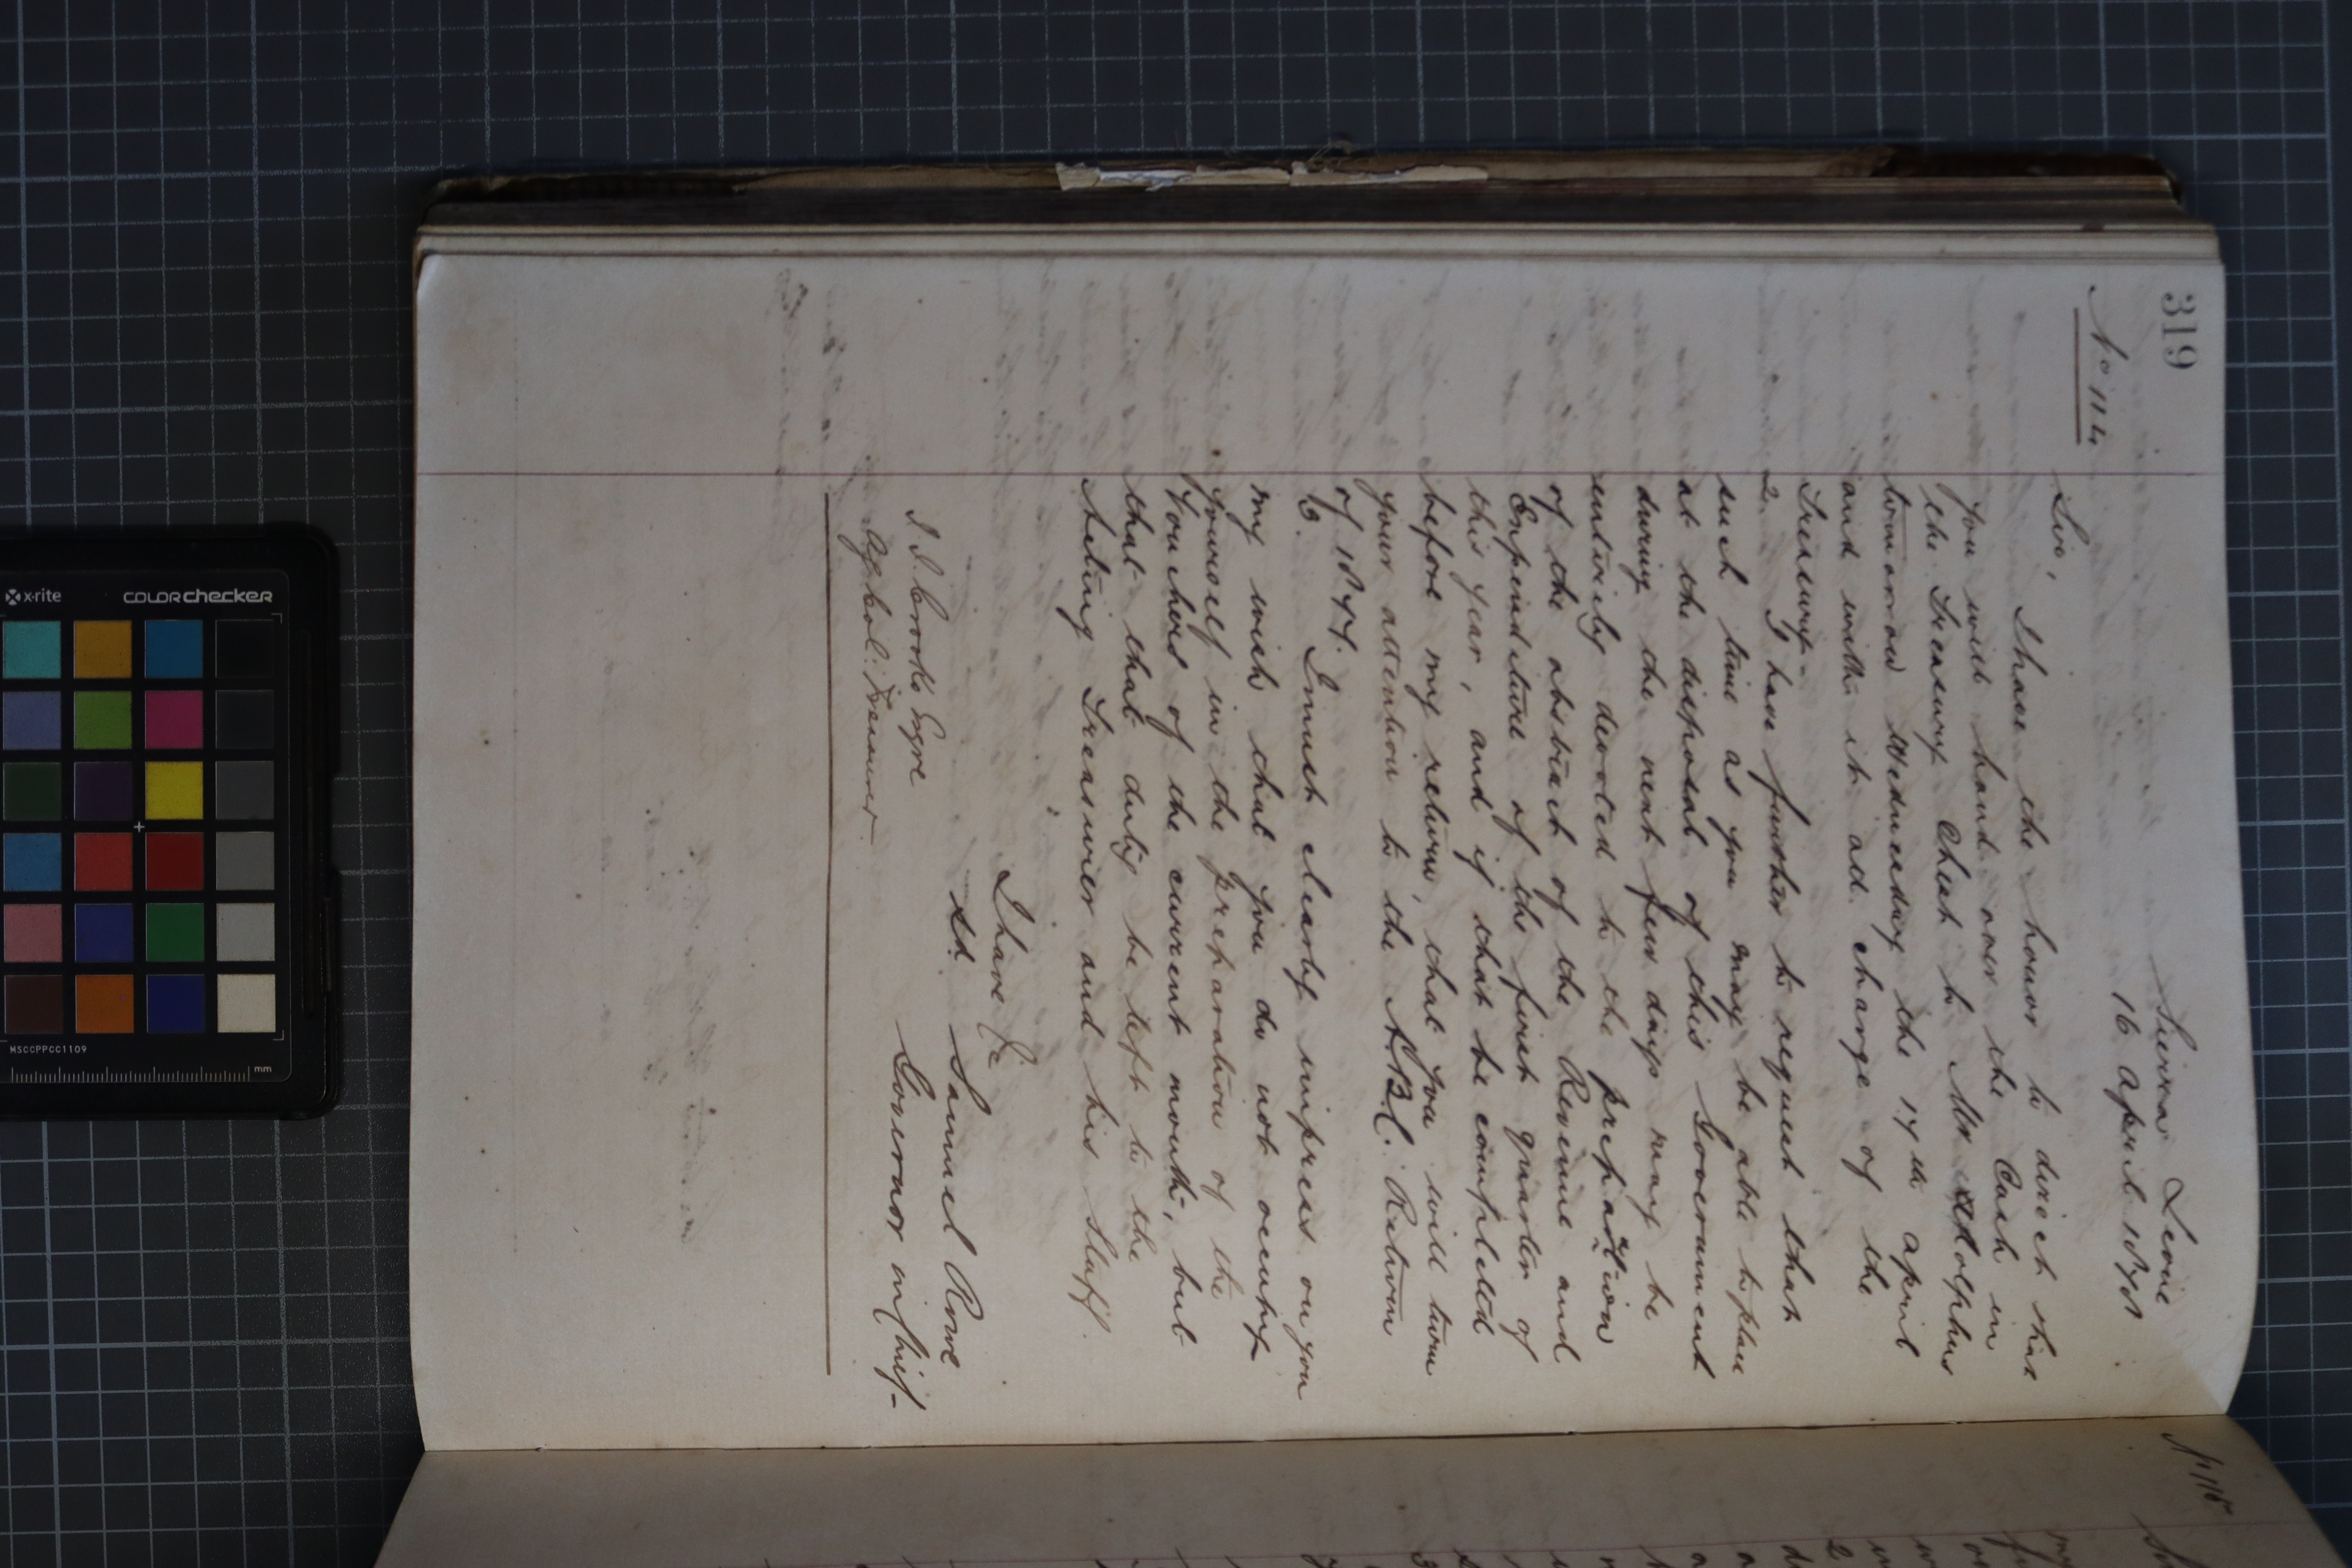 319
Sierra Leone
16 April 1878
No 114
Sir,
I have the honour to direct that
you will hand over the Cash in
the Treasury Chest to Mr Adolphus
tomorrow Wednesday the 17th April
and with it all charge of the
Treasury -
2. I have further to request that
such time as you may be able to place
at the disposal of this Government
during the next few days may be
entirely devoted to the preparation
of the abstract of the Revenue and
Expenditure of the first quarter of
this year, and if that be completed
before my return, that you will turn
your attention to the A.B.C. Return
of 1877.
3. I must clearly impress on you
my wish that you do not occupy
yourself in the preparation of the
Vouchers of the current month, but
that that duty be left to the
Acting Treasurer and his Staff.
I have &c
Sd. Samuel Rowe
Governor in Chief -
J. J. Crooks Esqre
Ag Col: Treasurer
No 115
x·rite
COLORchecker
MSCCPPCC1109
mm